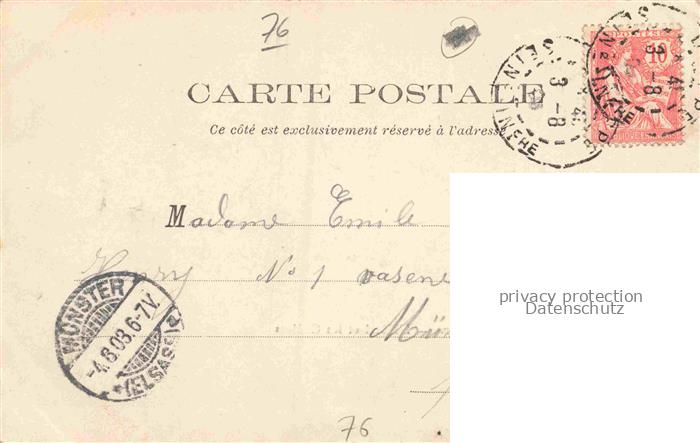 76
POSTES
10
3 -8
SEINE INFRE
3 -8
CARTE POSTALE
Ce côté est exclusivement réservé à l'adresse
Madame Emile
Henry No 1 vasene
Mün
privacy protection
Datenschutz
MÜNSTER
-4.8.03.6-7V.
*(ELSASS)*
76